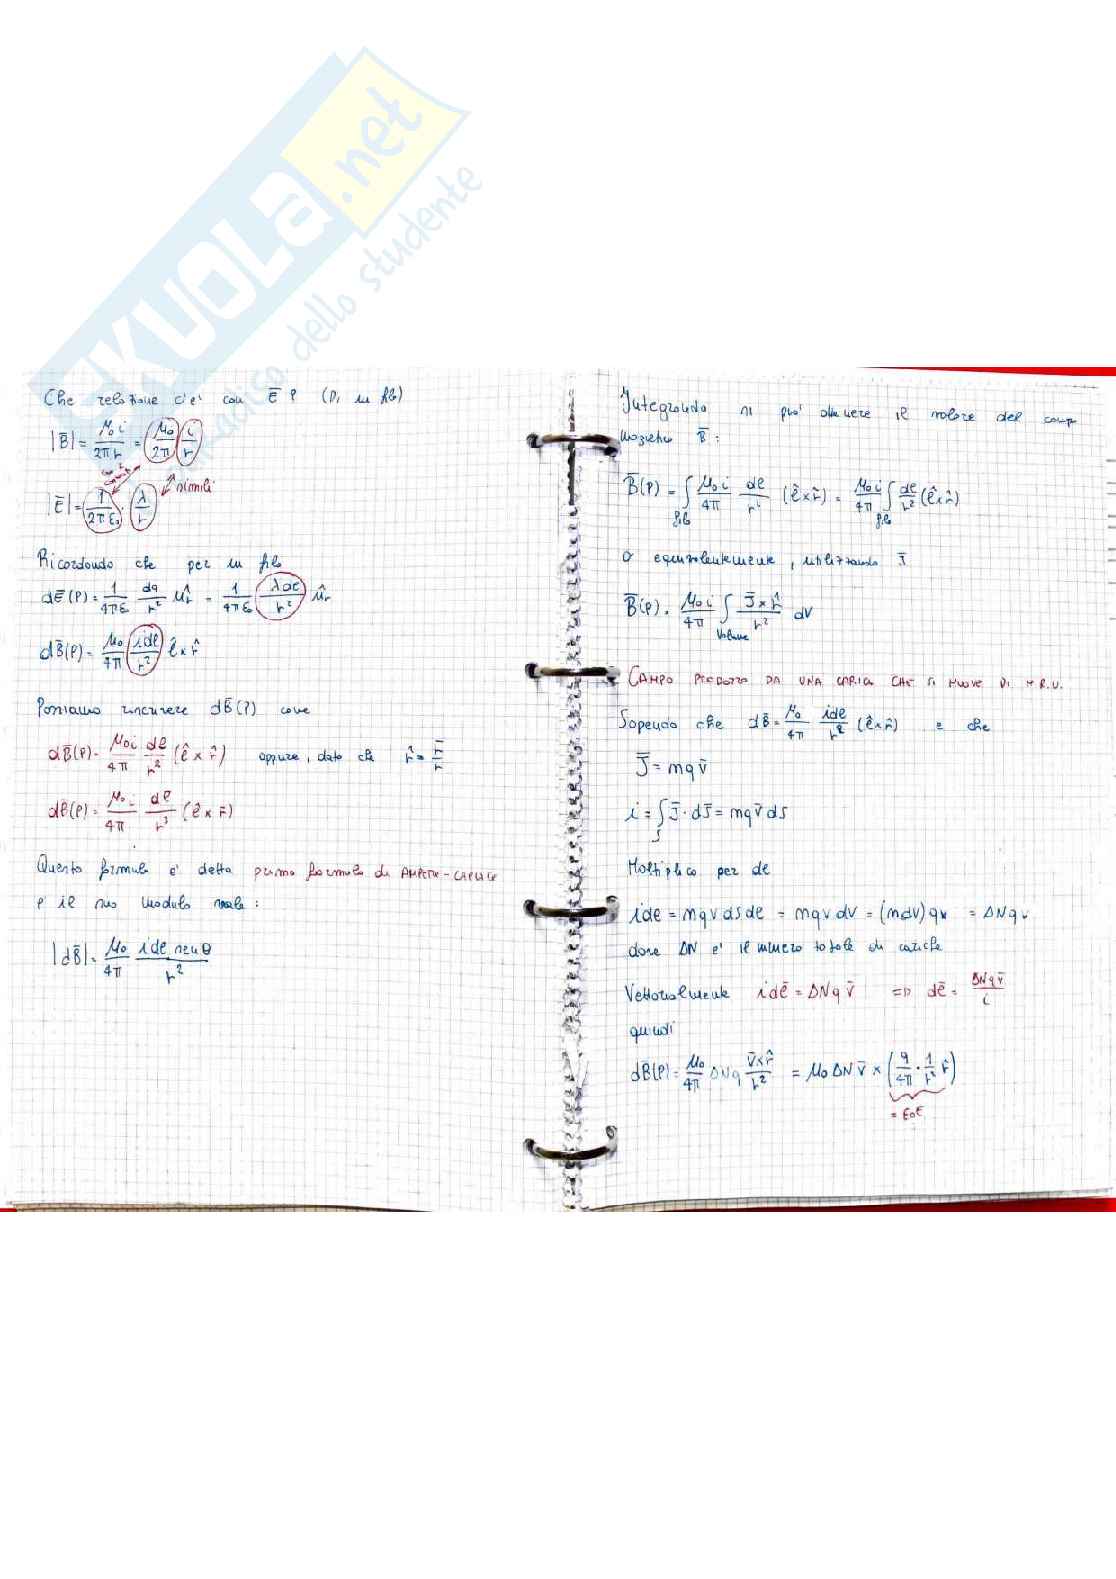 SKUOLA.net
dello studente
Che relazione c'e' con E̅ ? (Di un filo)
|B̅| = μ₀i/2πr = (μ₀/2π)(i/r)
simili
|E̅| = 1/2πε₀ · λ/r
Ricordando che per un filo
dE̅(P) = 1/4πε₀ dq/r² û_r = 1/4πε₀ λdℓ/r² û_r
dB̅(P) = μ₀/4π idℓ/r² ℓ̂ × r̂
Possiamo riscrivere dB̅(P) come
dB̅(P) = μ₀i/4π dℓ/r² (ℓ̂ × r̂) oppure, dato che r̂ = r̅/r
dB̅(P) = μ₀i/4π dℓ/r³ (ℓ̂ × r̅)
Questa formula e' detta prima formula di AMPERE-LAPLACE
e il suo modulo vale:
|dB̅| = μ₀/4π idℓ senθ/r²
Integrando si puo' ottenere il valore del campo
B̅:
B̅(P) = ∫filo μ₀i/4π dℓ/r² (ℓ̂×r̂) = μ₀i/4π ∫filo dℓ/r² (ℓ̂×r̂)
O equivalentemente, utilizzando J̅
B̅(P) = μ₀i/4π ∫Volume J̅×r̂/r² dV
CAMPO PRODOTTO DA UNA CARICA CHE SI MUOVE DI M.R.U.
Sapendo che dB̅ = μ₀/4π idℓ/r² (ℓ̂×r̂) e che
J̅ = nqv̅
i = ∫S J̅·dS̅ = nqv̅dS
Moltiplico per dℓ
idℓ = nqvdsdℓ = nqvdV = (ndV)qv = ΔNqv
dove ΔN e' il numero totale di cariche
Vettorialmente idℓ̅ = ΔNqv̅ => dℓ̅ = ΔNqv̅/i
quindi
dB̅(P) = μ₀/4π ΔNq v̅×r̂/r² = μ₀ΔNv̅ × (q/4π · 1/r² r̂)
= ε₀E